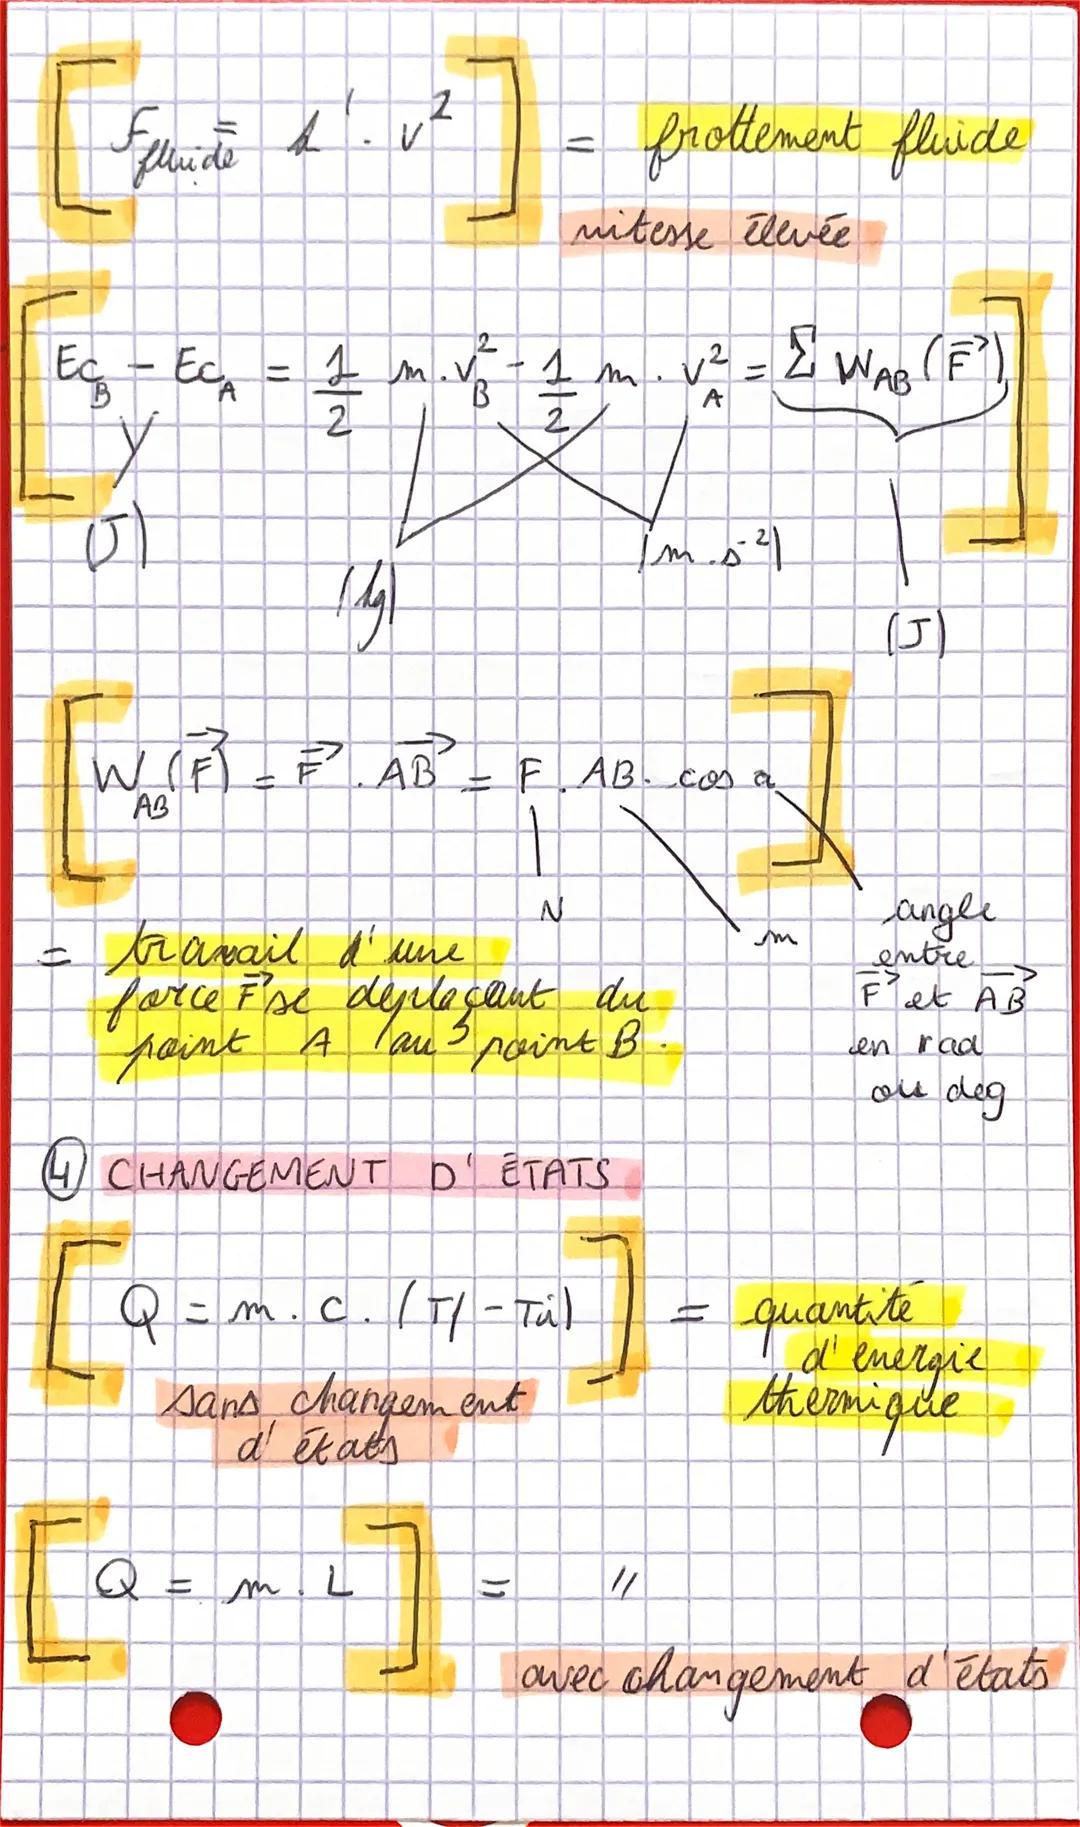 F fluide = k'. v² = frottement fluide
vitesse élevée
Ec_B - Ec_A = 1/2 m . v_B² - 1/2 m . v_A² = Σ W_AB (F→)
(J)
(kg)
(m.s⁻²)
(J)
W_AB (F→) = F→ . AB→ = F . AB . cos a
N
m
angle
entre
F→ et AB→
en rad
ou deg
= travail d'une
force F→ se déplaçant du
point A au point B.
④ CHANGEMENT D'ÉTATS
Q = m . c . (Tf - Ti) = quantité
d'énergie
thermique
sans changement
d'états
Q = m . L = "
avec changement d'états